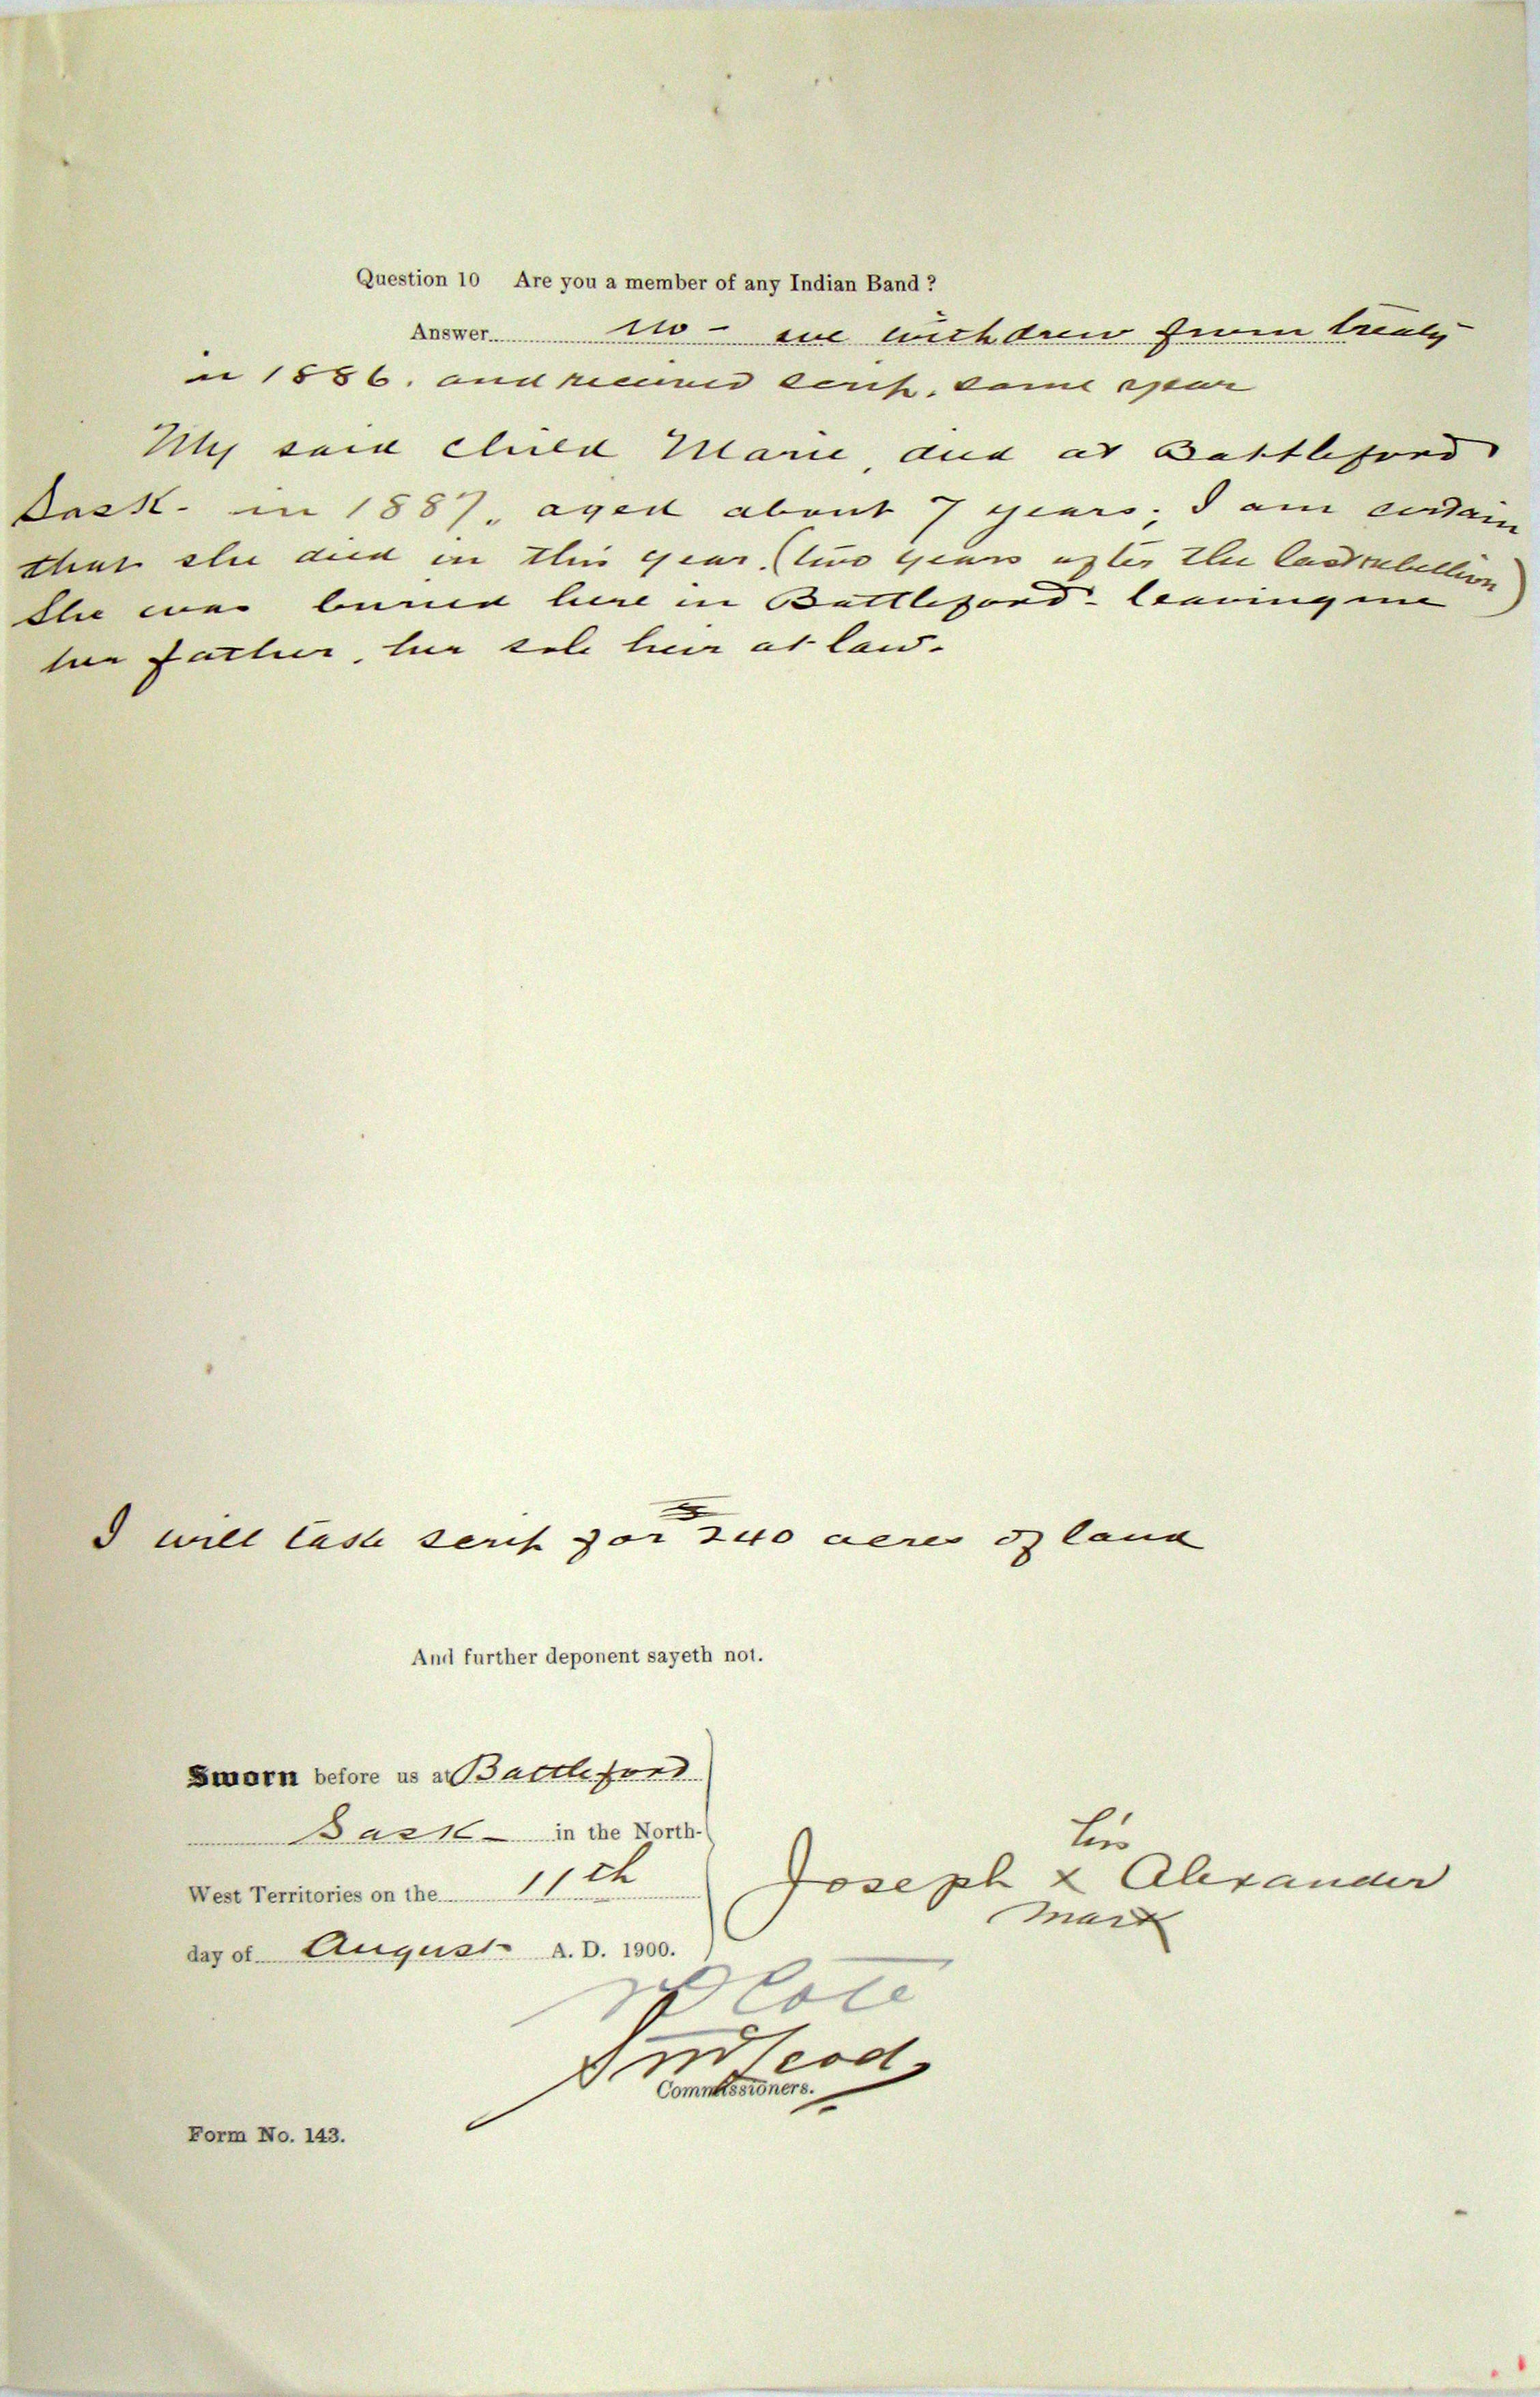 Question 10 Are you a member of any Indian Band ?
Answer no - we withdrew from treaty
in 1886. and received scrip. same year
My said child Marie, died at Battleford
Sask. in 1887, aged about 7 years; I am certain
that she died in this year. (two years after the last rebellion)
She was buried here in Battleford - leaving me
her father, her sole heir at law.
I will take scrip for 240 acres of land
And further deponent sayeth not.
Sworn before us at Battleford
Sask - in the North-
West Territories on the 11th
day of August A. D. 1900.
his
Joseph x Alexander
mark
Cote
McLeod
Commissioners.
Form No. 143.